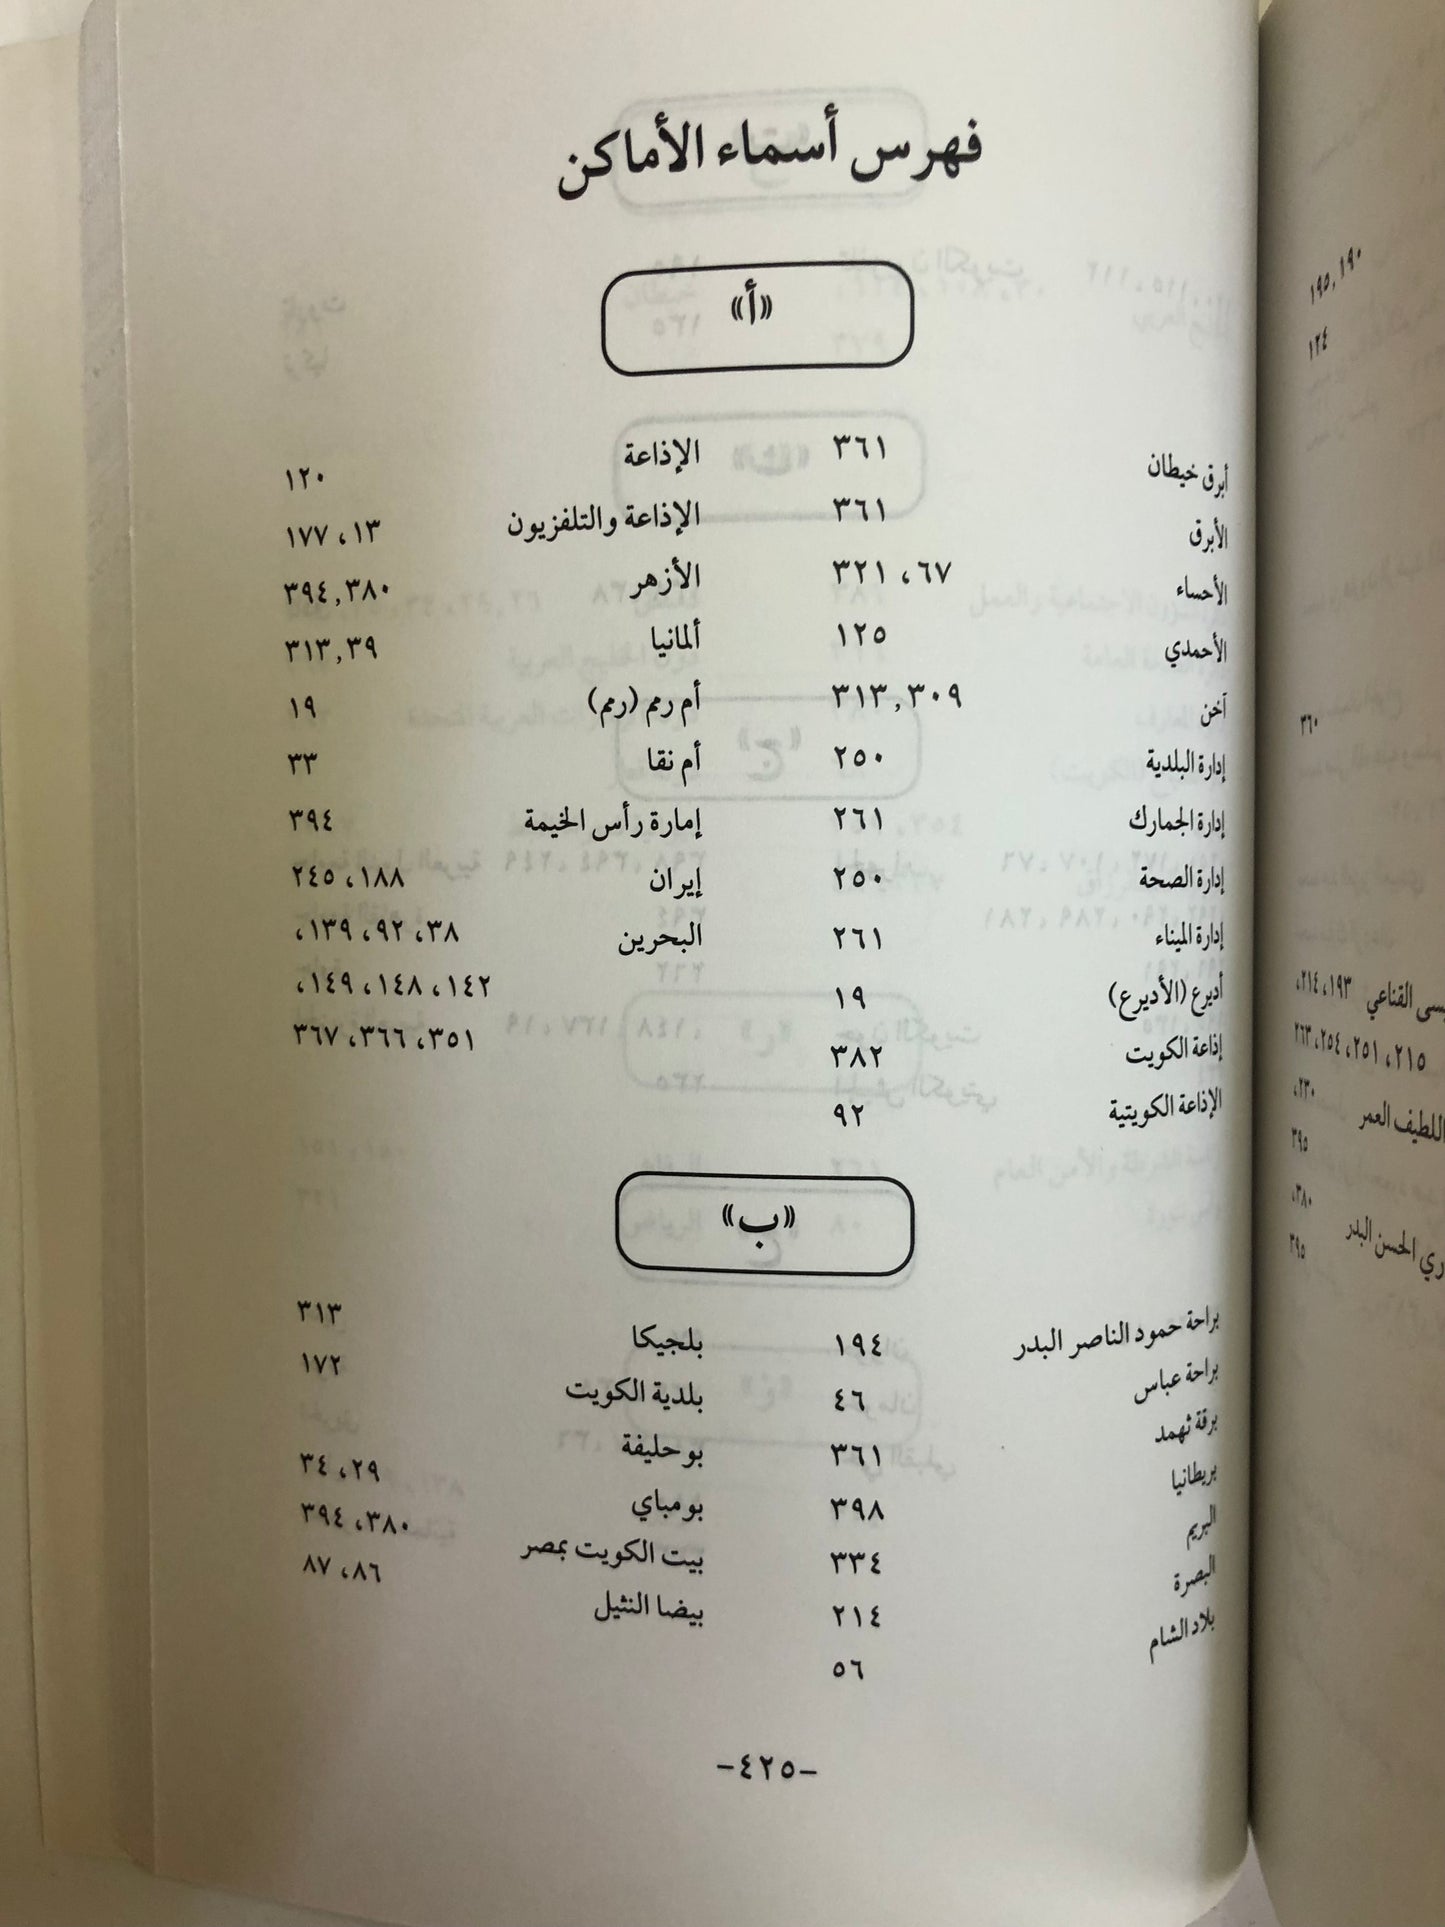 ١٩٠, ١٩٥
١٢٤
٣٦٠
القناعي ١٩٣، ٢١٤،
٢١٥، ٢٥١، ٢٥٤، ٢٦٣
اللطيف العمر ٢٣٠،
٣٩٥
الحسن البدر ٣٨٠،
٣٩٥
فهرس أسماء الأماكن
«أ»
أبرق خيطان ٣٦١
الأبرق ٣٦١
الأحساء ٦٧، ٣٢١
الأحمدي ١٢٥
آخن ٣٠٩, ٣١٣
إدارة البلدية ٢٥٠
إدارة الجمارك ٢٦١
إدارة الصحة ٢٥٠
إدارة الميناء ٢٦١
أديرع (الأديرع) ١٩
إذاعة الكويت ٣٨٢
الإذاعة الكويتية ٩٢
الإذاعة ١٢٠
الإذاعة والتلفزيون ١٣، ١٧٧
الأزهر ٣٨٠, ٣٩٤
ألمانيا ٣٩, ٣١٣
أم رمم (رمم) ١٩
أم نقا ٣٣
إمارة رأس الخيمة ٣٩٤
إيران ١٨٨، ٢٤٥
البحرين ٣٨، ٩٢، ١٣٩،
١٤٢، ١٤٨، ١٤٩،
٣٥١، ٣٦٦، ٣٦٧
«ب»
براحة حمود الناصر البدر ١٩٤
براحة عباس ٤٦
برقة ثهمد ٣٦١
بريطانيا ٣٩٨
البريم ٣٣٤
البصرة ٢١٤
بلاد الشام ٥٦
بلجيكا ٣١٣
بلدية الكويت ١٧٢
بو حليفة
بومباي ٢٩، ٣٤
بيت الكويت بمصر ٣٨٠، ٣٩٤
بيضا النثيل ٨٦، ٨٧
-٤٢٥-